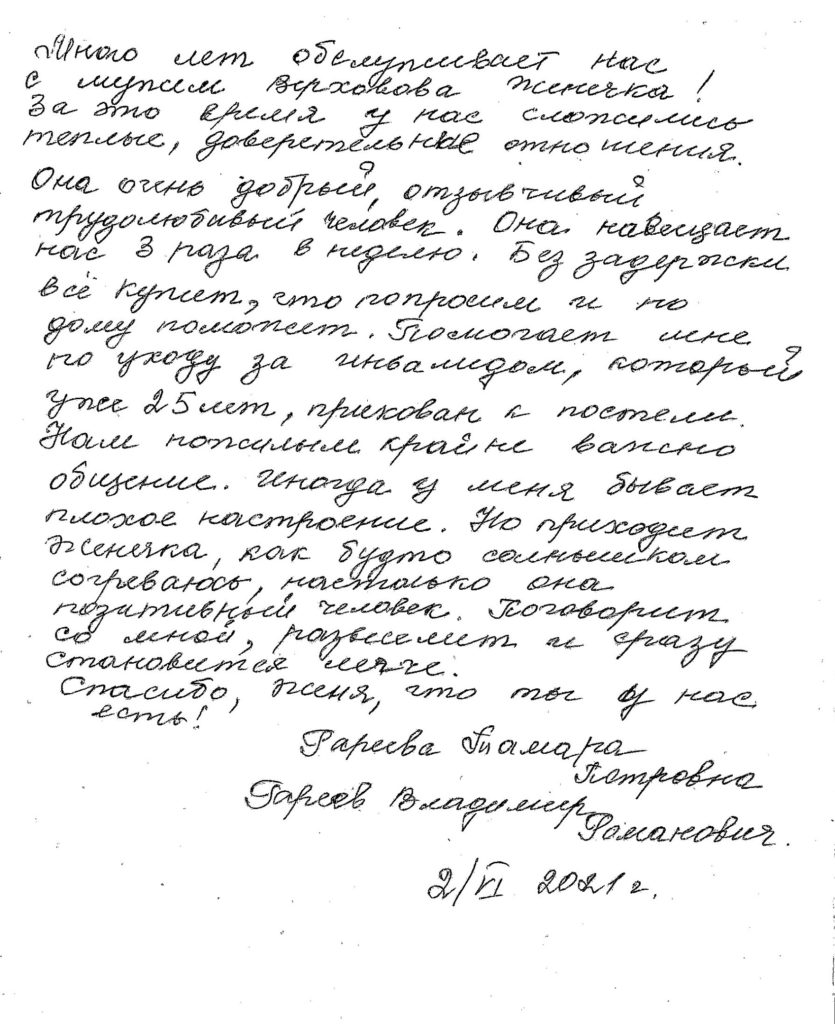 Много лет обслуживает нас
с мужем Верховова Женечка!
За это время у нас сложились
теплые, доверетельные отношения.
Она очень добрый, отзывчивый
трудолюбивый человек. Она навещает
нас 3 раза в неделю. Без задержки
всё купит, что попросим и по
дому поможет. Помогает мне
по уходу за инвалидом, который
уже 25 лет, прикован к постели.
Нам пожилым крайне важно
общение. Иногда у меня бывает
плохое настроение. Но приходит
Женечка, как будто солнышком
согреваюсь, настолько она
позитивный человек. Поговорит
со мной, развеселит и сразу
становится легче.
Спасибо, Женя, что ты у нас
есть!
Гареева Тамара
Петровна
Гареев Владимир
Романович.
2/VI 2021 г.